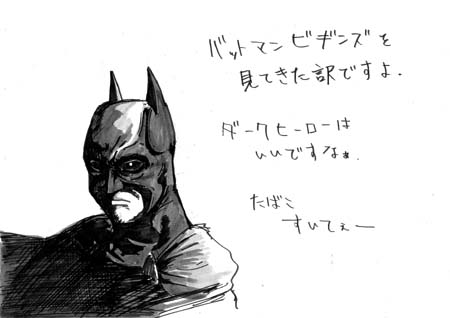 バットマン ビギンズを
見てきた訳ですよ.
ダークヒーローは
いいですなぁ.
たばこ
すいてぇー